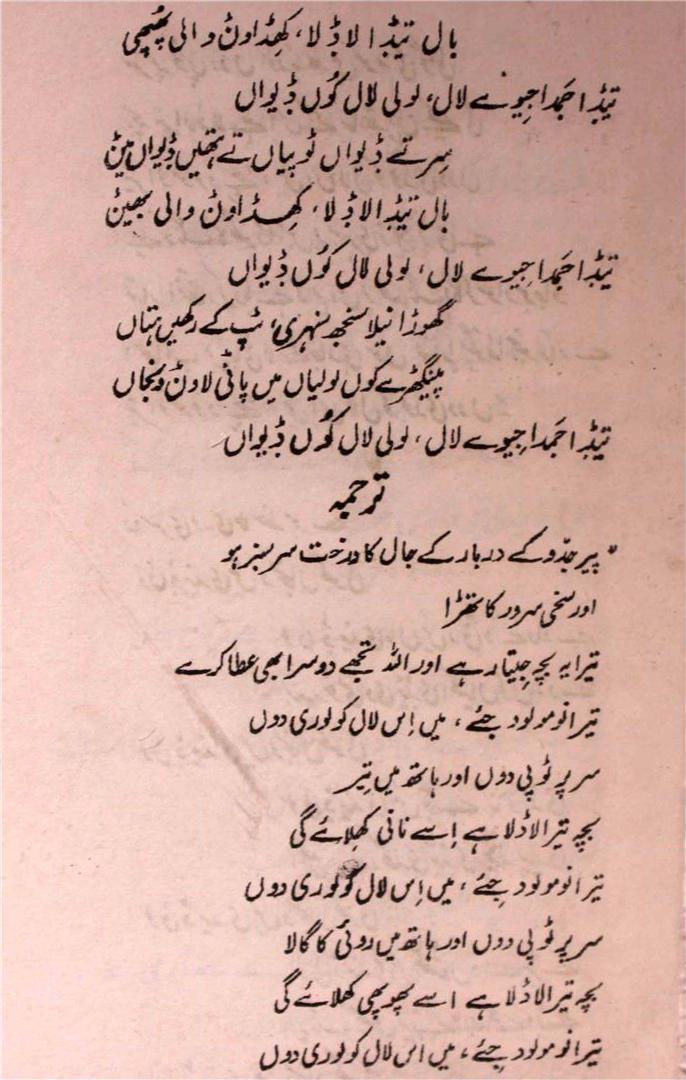 بال تیڈا لاڈلا، کھِڈاون والی پھپھی
تیڈا جَمدا جیوے لال، لولی لال کُوں ڈیواں
سِر تے ڈیواں ٹوپیاں تے ہتھیں ڈیواں مینݨ
بال تیڈا لاڈلا، کھِڈاوݨ والی بھیݨ
تیڈا جَمدا جیوے لال، لولی لال کُوں ڈیواں
گھوڑا نیلا سنجھ سنہری، ٹپ کے رکھیں ہتاں
پینگھڑے کوں لولیاں میں پاݨی لاوݨ ونجاں
تیڈا جَمدا جیوے لال، لولی لال کُوں ڈیواں
ترجمہ
* پیر جدّو کے دربار کے جال کا درخت سرسبز ہو
اور سخی سرور کا تھڑا
تیرا یہ بچہ جیتا رہے اور اللہ تجھے دوسرا بھی عطا کرے
تیرا نومولود جئے، میں اِس لال کو لوری دوں
سر پر ٹوپی دوں اور ہاتھ میں تِیر
بچہ تیرا لاڈلا ہے اِسے نانی کھِلائے گی
تیرا نومولود جِئے، میں اِس لال کو لوری دوں
سر پر ٹوپی دوں اور ہاتھ میں روئی کا گالا
بچہ تیرا لاڈلا ہے اسے پھوپھی کھلائے گی
تیرا نومولود جِئے، میں اس لال کو لوری دوں